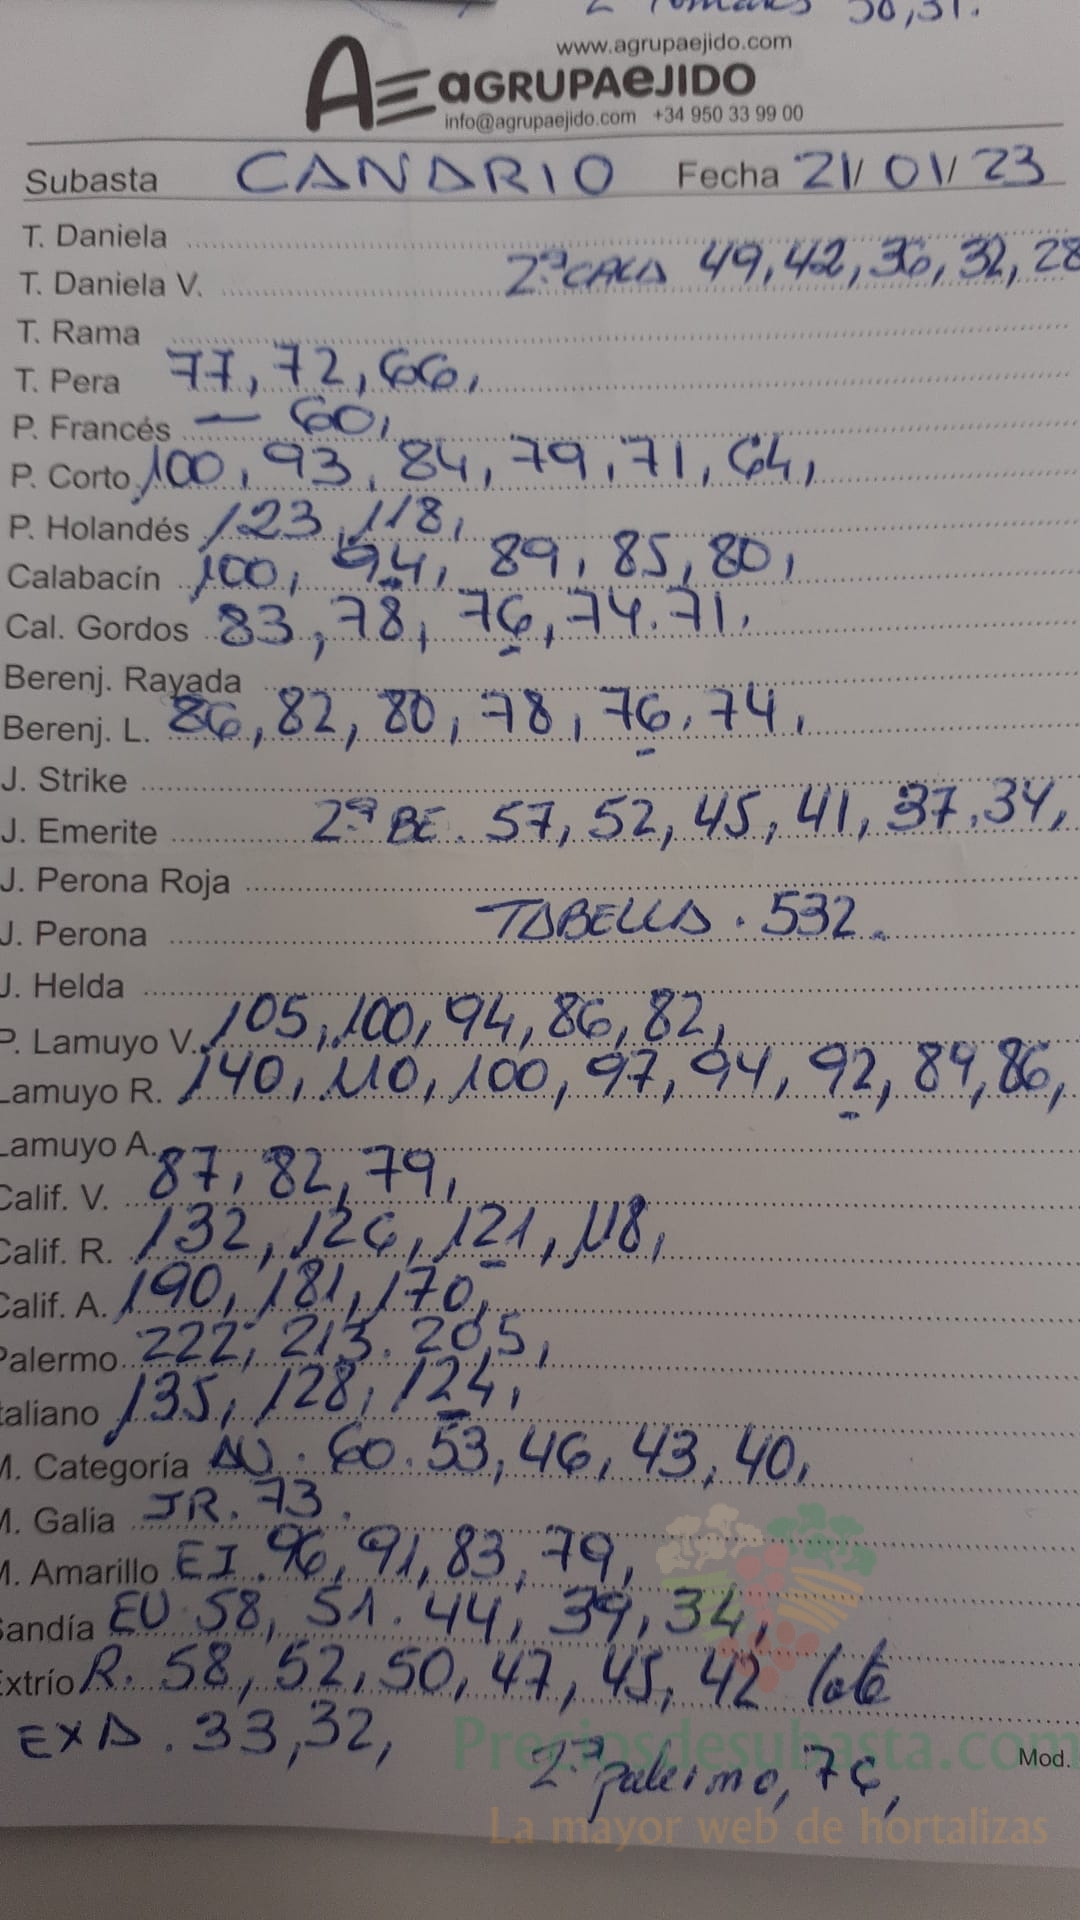 2ª Tomates 38,31.
www.agrupaejido.com
AE aGRUPAeJIDO
info@agrupaejido.com +34 950 33 99 00
Subasta CANARIO Fecha 21/01/23
T. Daniela
T. Daniela V. 2ª CALA 49,42,36,32,28
T. Rama
T. Pera 77,72,66,
P. Francés — 60,
P. Corto 100, 93, 84, 79, 71, 64,
P. Holandés 123, 118,
Calabacín 100, 94, 89, 85, 80,
Cal. Gordos 83, 78, 76, 74. 71,
Berenj. Rayada
Berenj. L. 86, 82, 80, 78, 76, 74,
J. Strike
J. Emerite 2ª BE. 57, 52, 45, 41, 37, 34,
J. Perona Roja
J. Perona TABELLA. 532.
J. Helda
P. Lamuyo V. 105, 100, 94, 86, 82,
Lamuyo R. 140, 110, 100, 97, 94, 92, 89, 86,
Lamuyo A.
Calif. V. 87, 82, 79,
Calif. R. 132, 126, 121, 118,
Calif. A. 190, 181, 170,
Palermo 222, 213. 205,
taliano 135, 128, 124,
M. Categoría AU. 60. 53, 46, 43, 40,
M. Galia JR. 73.
M. Amarillo EI. 96, 91, 83, 79,
Sandía EU 58, 51. 44, 39, 34,
Extrío R. 58, 52, 50, 47, 45, 42 lote
EXA. 33, 32,
Preciosdesubasta.com
Mod.
2ª palermo, 76,
La mayor web de hortalizas